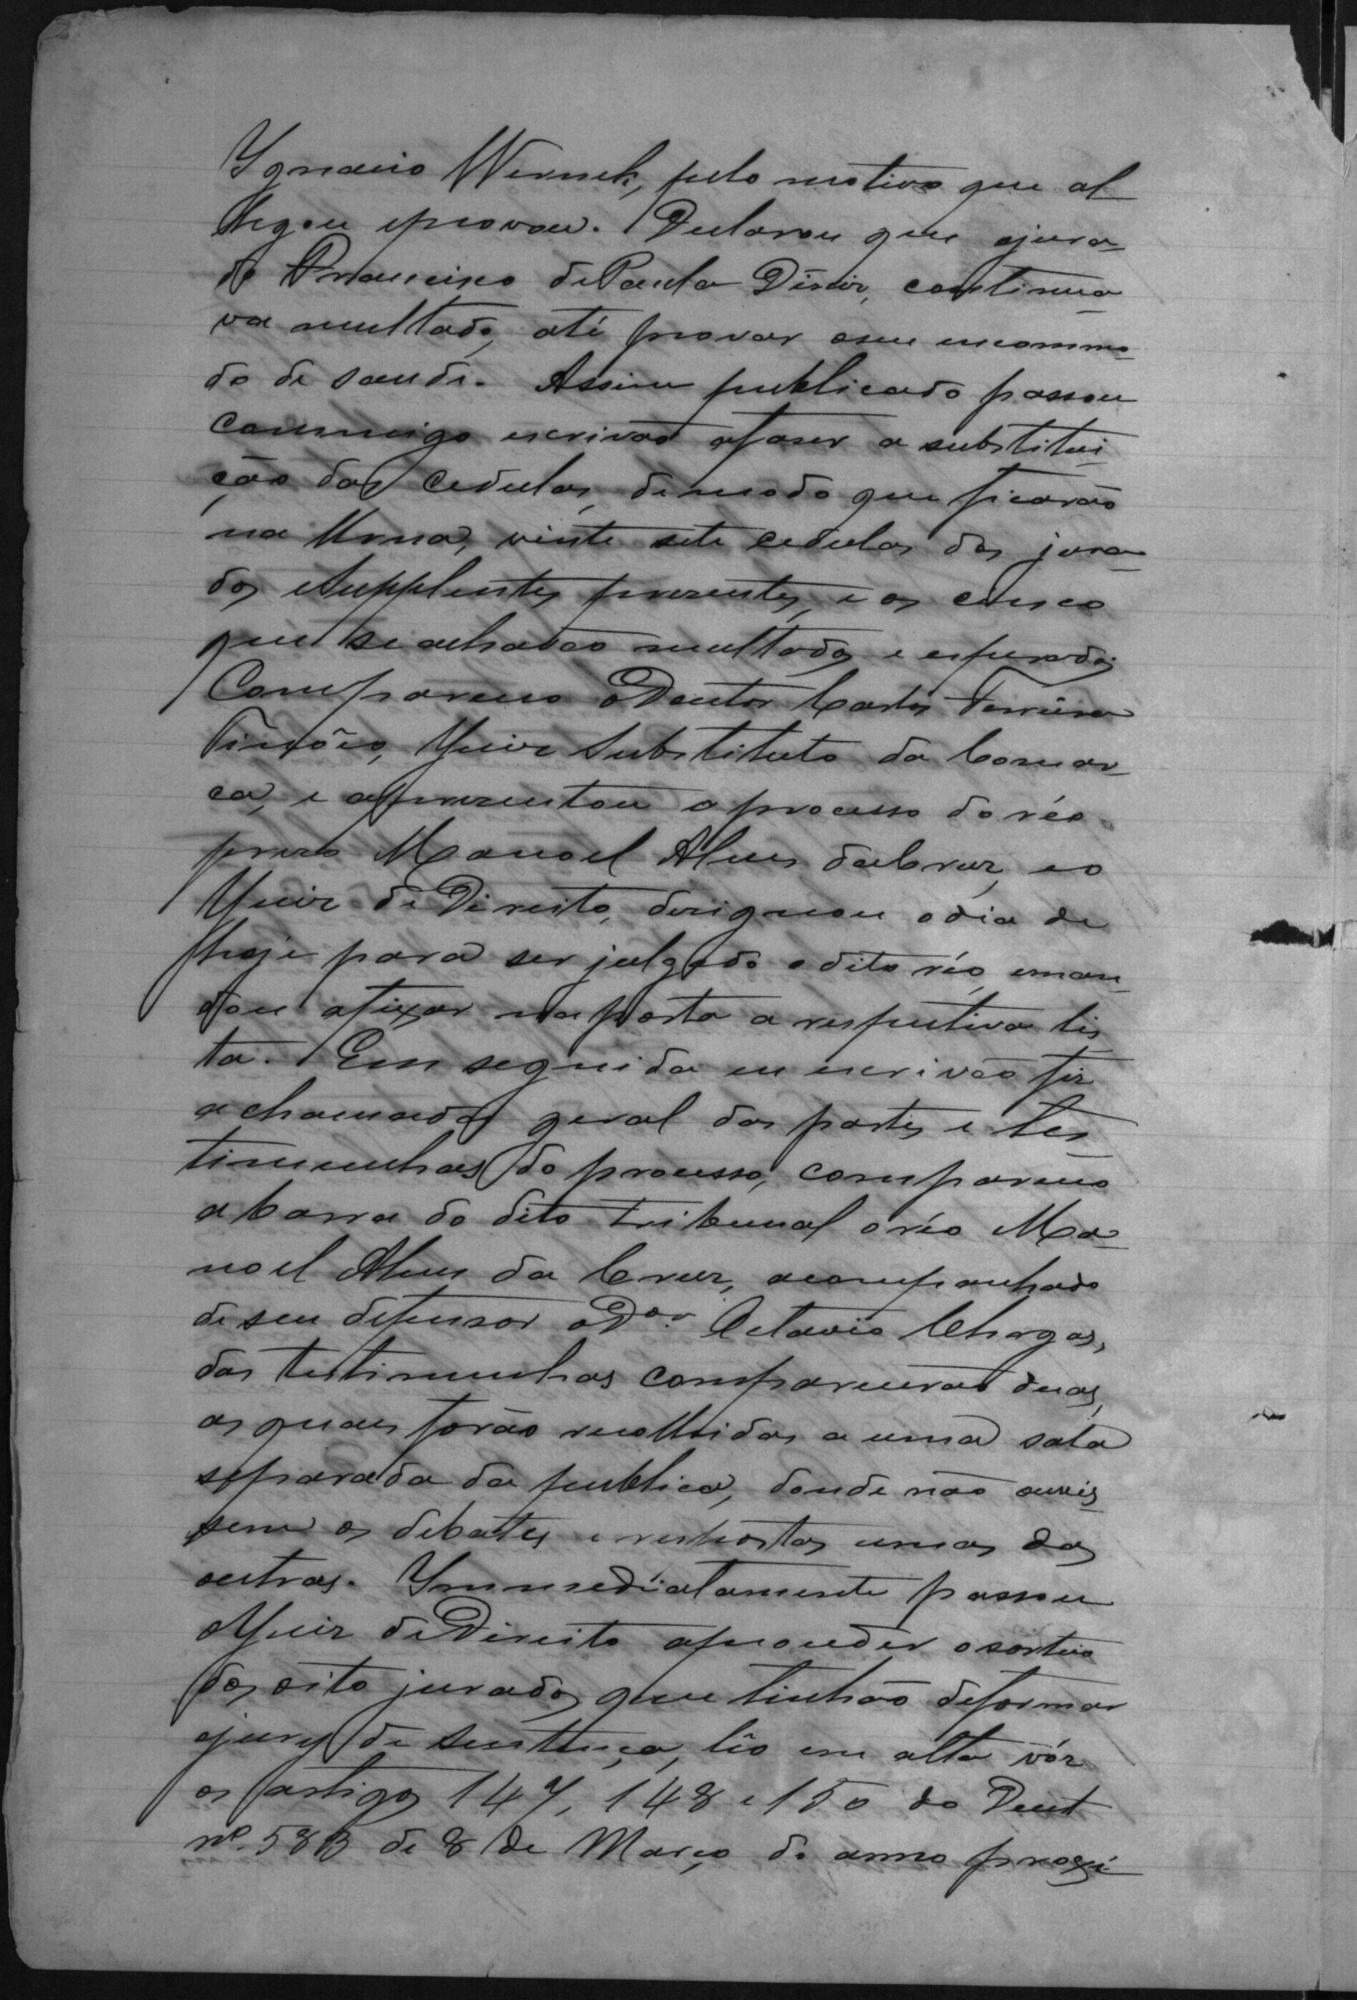 Ygnacio Werneck, pelo motivo que al
legou eprovou. Declarou que ojura-
do Francisco de Paula Diniz, continua
va multado, até provar oseu incommo-
do de saude. Assim publicado passou
commigo escrivão afaser a substitui-
ção das cedulas, demodo que ficarão
na Urna, vinte sete cedulas dos jura-
dos esupplentes presentes, e os cinco
que se achavão multados e esperados
Compareceo oDoutor Carlos Ferreira
Tinôco, Juiz Substituto da Comar-
ca, e apresentou o processo do réo
preso Manoel Alves da Cruz, eo
Juiz de Direito, designou odia de
hoje para ser julgado odito réo, eman-
dou afixar na porta a respectiva lis
ta. Em seguida eu escrivão fiz
a chamada geral das partes e tes-
timunhas do processo, compareceo
a barra do dito tribunal o réo Ma-
noel Alves da Cruz, acompanhado
de seu defensor oDor. Octavio Chagas,
das testimunhas comparecerão duas,
as quaes forão recolhidas a uma sala
separada da publica, donde não ouvis-
sem os debates e respostas umas das
outras. Ymmediatamente passou
oJuiz de Direito aproceder osorteio
dos oito jurados que tinhão deformar
ojury de sentença, lêo em alta vóz
os artigos 147, 148 e 150 do Decret
nº 583 de 8 de Março do anno proxi